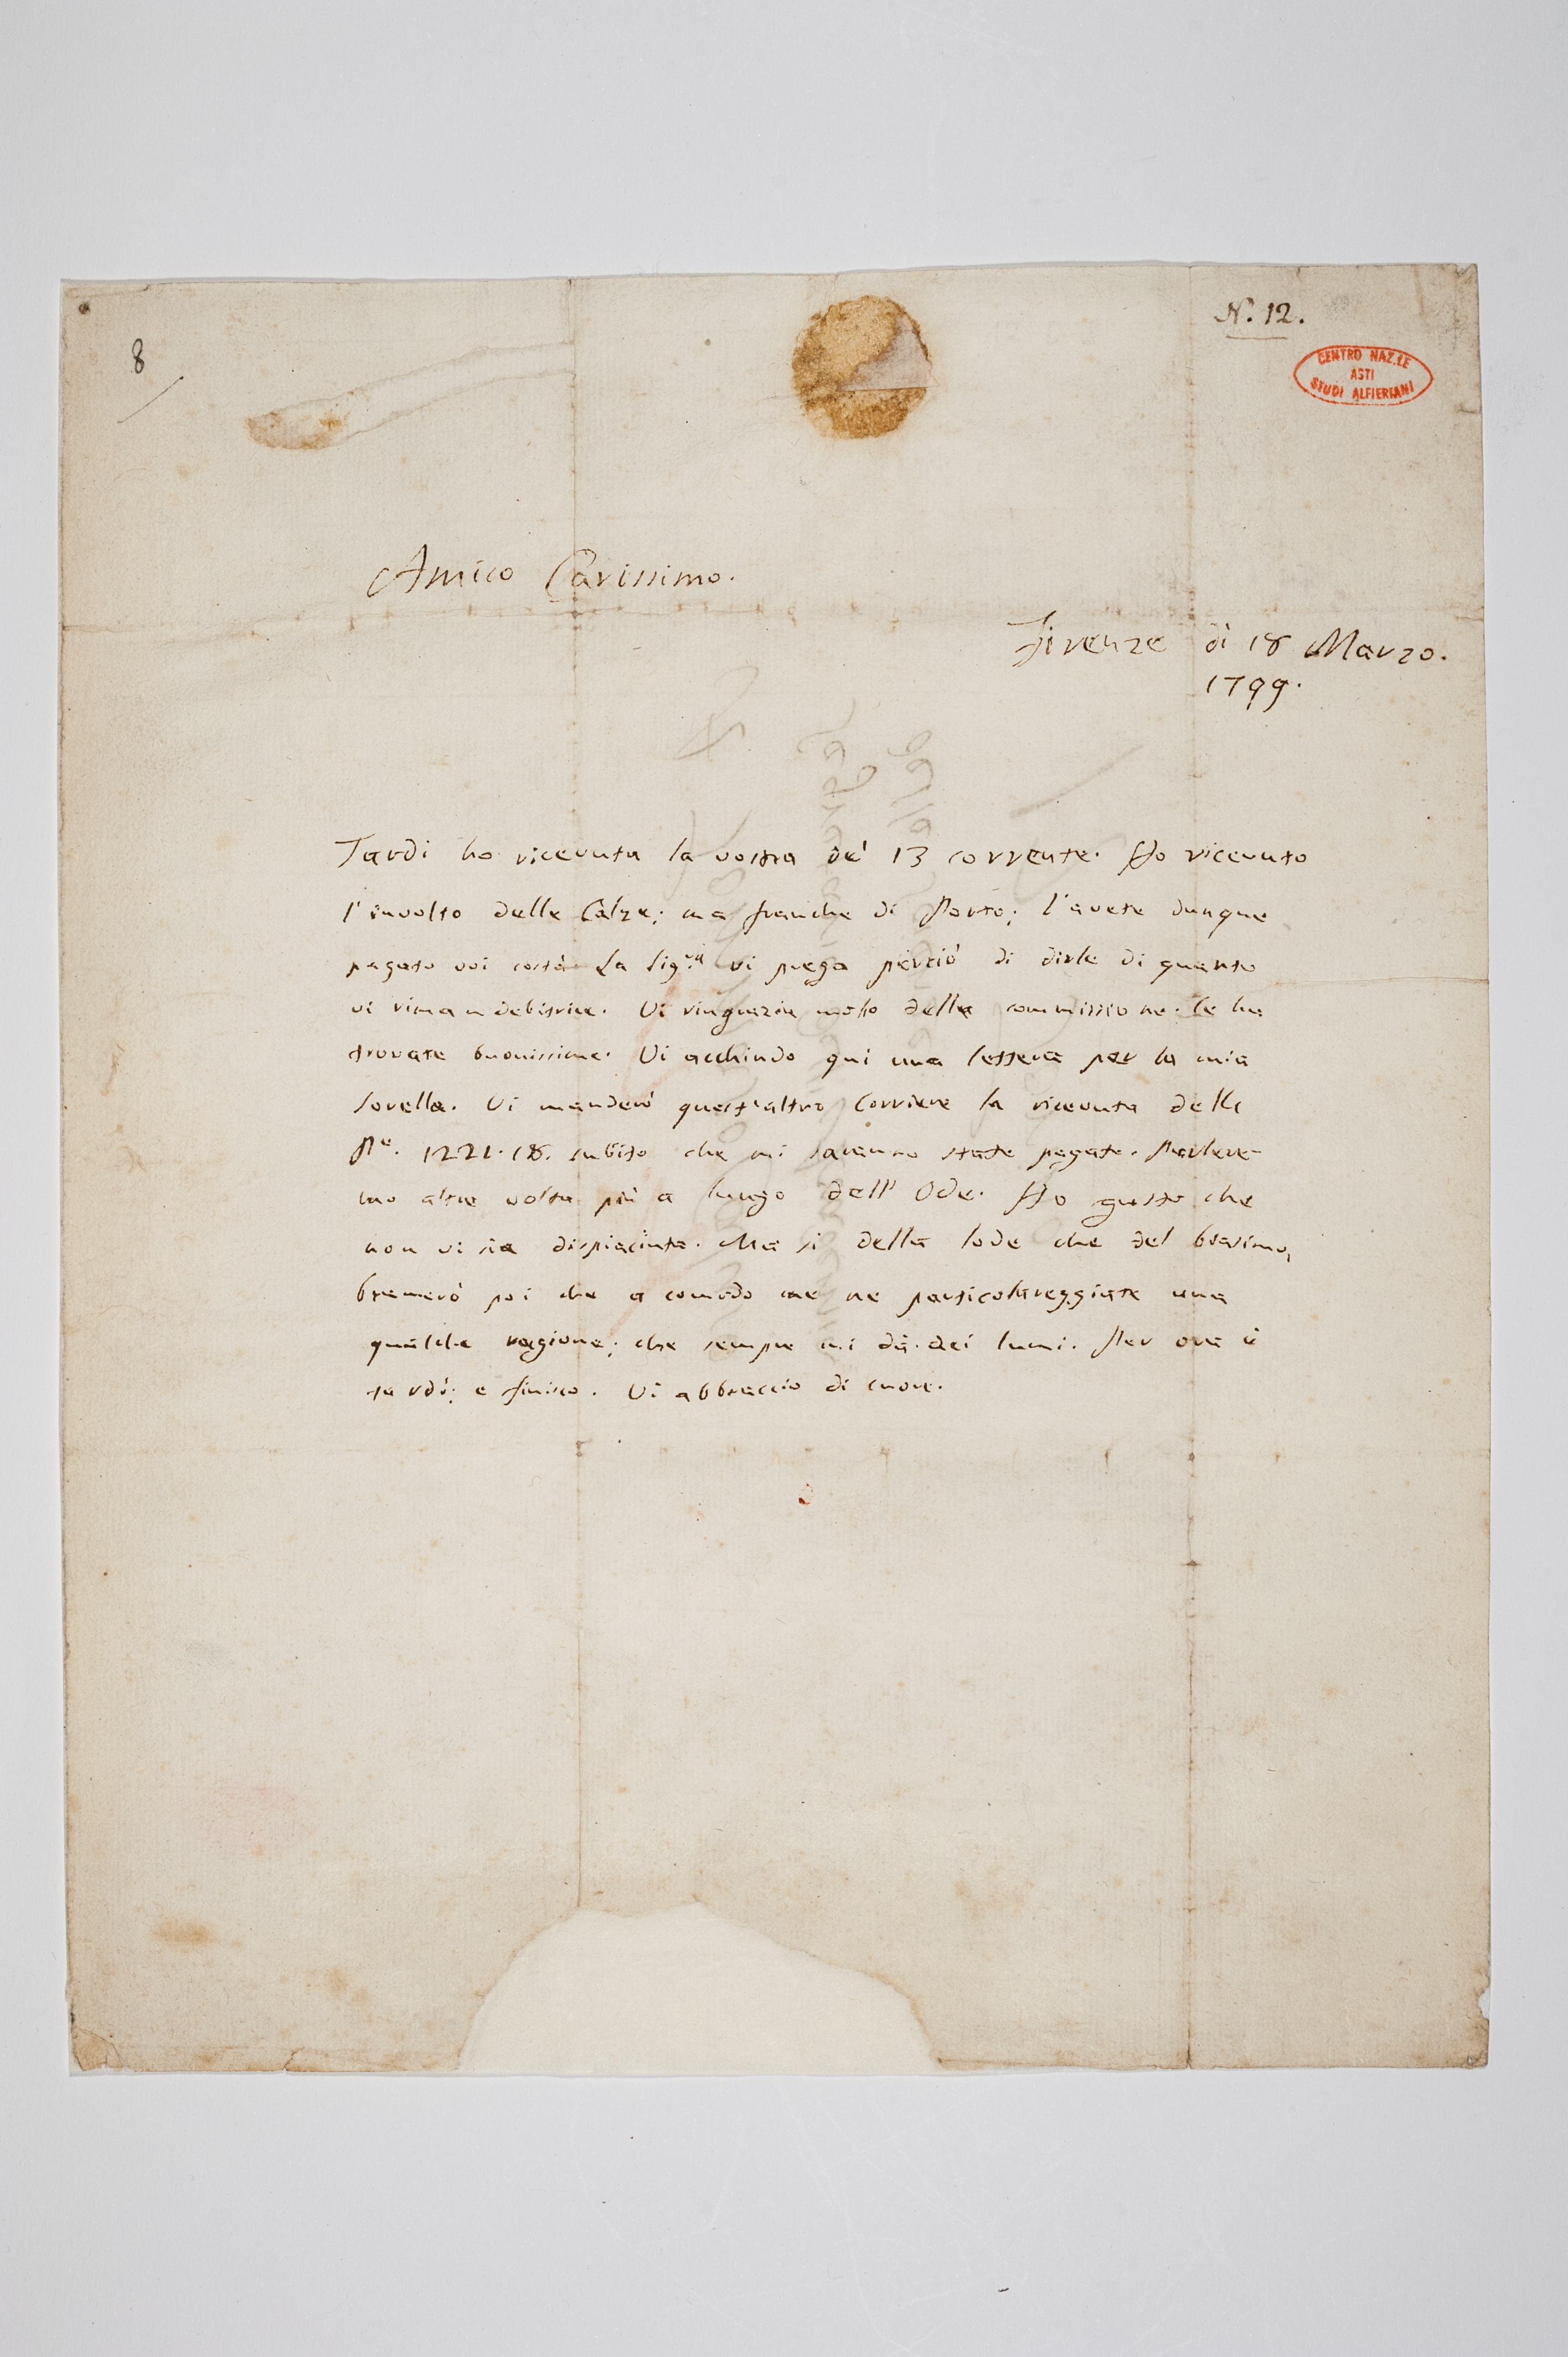 8
N. 12.
CENTRO NAZ.LE
ASTI
STUDI ALFIERIANI
Amico Carissimo.
Firenze dì 18 Marzo.
1799.
Tardi ho ricevuta la vostra de' 13 corrente. Ho ricevuto
l'involto delle Calze; ma franche di Porto; l'avete dunque
pagato voi costà. La Sig.ra vi prega perciò di dirle di quanto
vi riman debitrice. Vi ringrazia molto della commissione. le ha
trovate buonissime. Vi acchiudo qui una lettera per la mia
Sorella. Vi manderò quest'altro Corriere la ricevuta delle
1221.18. subito che mi saranno state pagate. Parlere-
mo altra volta più a lungo dell'Ode. Ho gusto che
non vi sia dispiaciuta. Ma sì della lode che del biasimo,
bramerò poi che a comodo me ne particolareggiate una
qualche ragione; che sempre mi dà dei lumi. Per ora è
tardi; e finisco. Vi abbraccio di cuore.